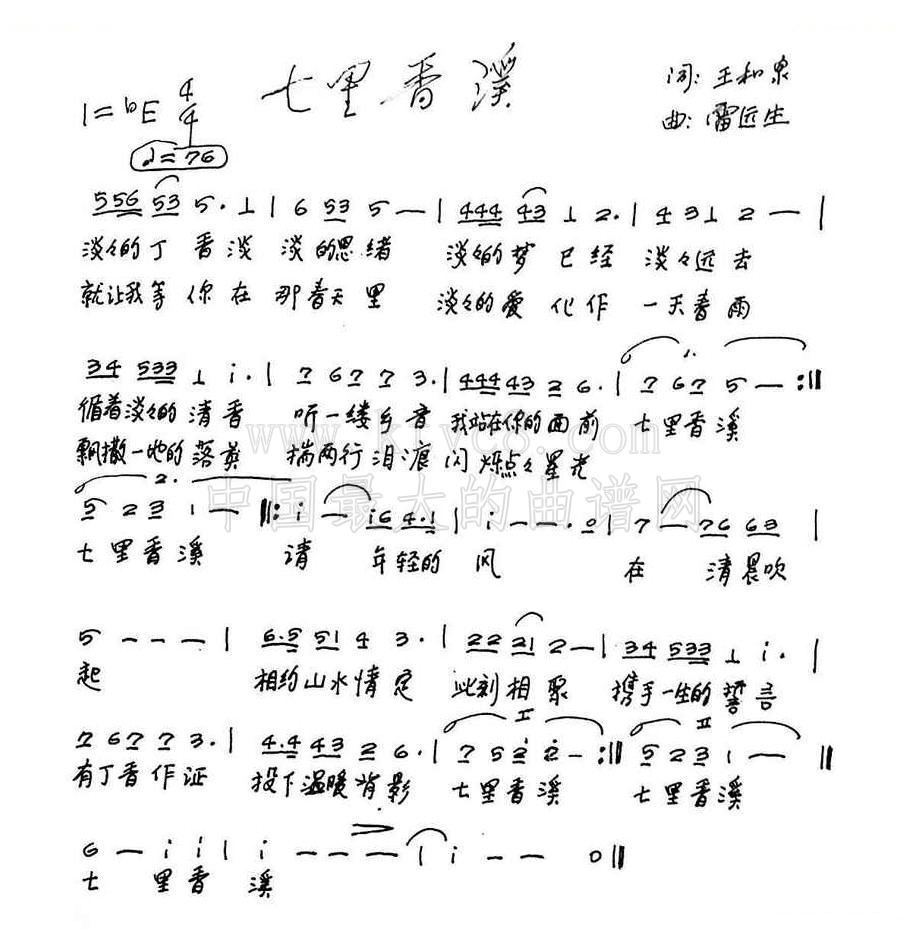 七里香溪
1=bE 4/4
♩=76
词: 王和泉
曲: 雷远生
556 53 5. 1 | 6 53 5 — | 444 43 1 2. | 4 3 1 2 — |
淡々的丁香淡 淡的思绪 淡々的梦已经 淡々远去
就让我等你在那春天里 淡々的爱化作一天春雨
34 533 1 i. | 7 6 7 7 3. | 444 43 2 6. | 1. 7 6 7 5 — :||
循着淡々的清香 听一缕乡音 我站在你的面前 七里香溪
飘撒一地的落英 揣两行泪痕 闪烁点々星光
www.ktvc8.com
中国最大的曲谱网
2. 5 2 3 1 — ||: i — i6 4.1 | i — — .0 | 7 — 76 63 |
七里香溪 请 年轻的风 在 清晨吹
5 — — — | 6.5 51 4 3. | 22 21 2 — | 34 533 1 i. |
起 相约山水情定 此刻相聚 携手一生的誓言
7 6 7 7 3. | 4.4 43 2 6. | I 7 5 2 2 — :|| II 5 2 3 1 — ||
有丁香作证 投下温暖背影 七里香溪 七里香溪
6 — i i | i — — — | i — — 0 ||
七 里香 溪